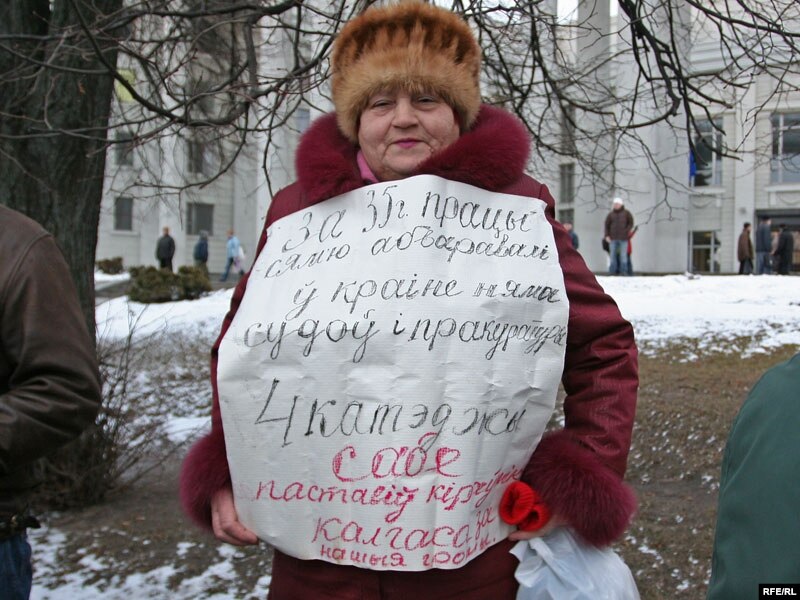 За 35г. працы
сямю абъакравалі
ў краіне няма
судоў і пракуратуры
4 катэджы
сабе
паставіў кіраўнік
калгаса за
нашыя грошы.
RFE/RL